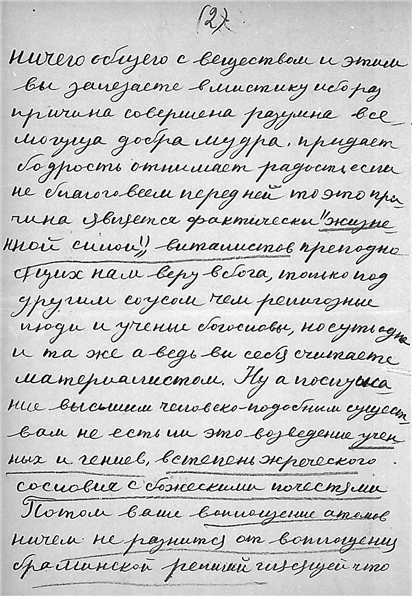 (2).
ничего общего с веществом и этим
вы залезаете в мистику ибо раз
причина совершена разумна все
могуща добра мудра, придает
бодрость отнимает радость, если
не благоговеем перед ней то это при
чина является фактически "жизне
нной силой", виталистов преподно
сящих нам веру в бога, только под
другим соусом чем религиозные
люди и ученые богословы, но суть одна
и та же а ведь вы себя считаете
материалистом. Ну а послуша
ние высшим человеко-подобным сущест
вам не есть ли это возведение учен
ных и гениев, в степень жреческого
сословия с божескими почестями
Потом ваше воплощение атомов
ничем не разнится от воплощения
браминской религии гласящей что